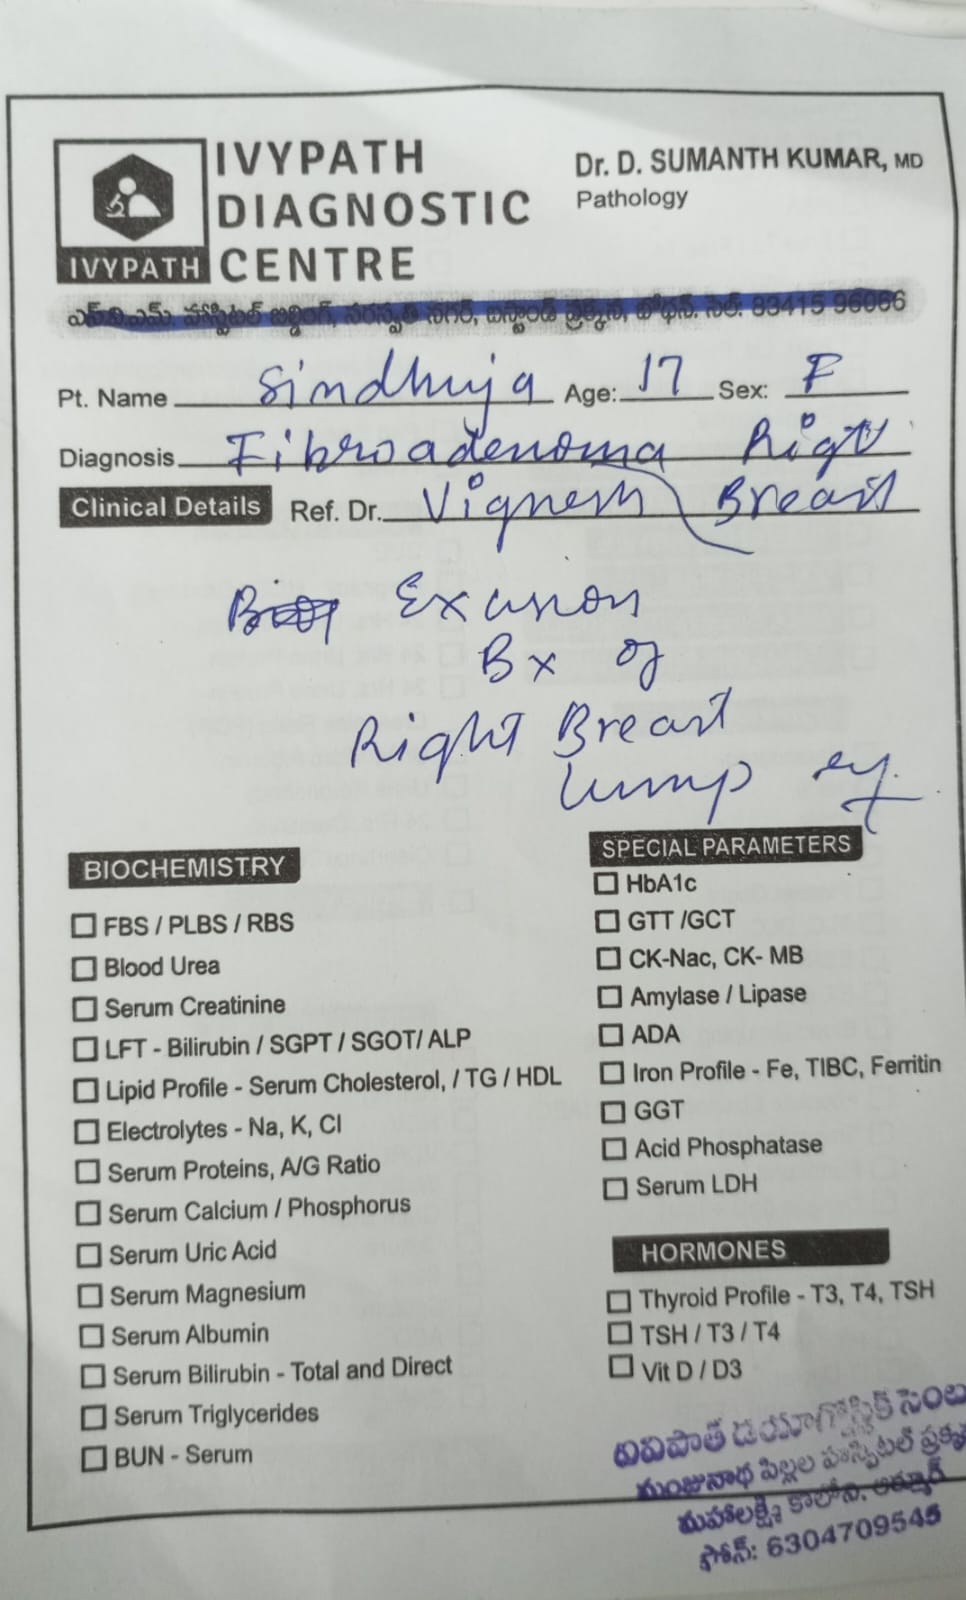 IVYPATH
DIAGNOSTIC
CENTRE
IVYPATH
Dr. D. SUMANTH KUMAR, MD
Pathology
ఎన్.వి.ఎమ్. హాస్పిటల్ బిల్డింగ్, సరస్వతి నగర్, బస్టాండ్ ప్రక్కన, బోధన్. సెల్. 83415 96066
Pt. Name Sindhuja Age: 17 Sex: F
Diagnosis Fibroadenoma Right
Breast
Clinical Details Ref. Dr. Vignesh
Excision
Bx of
Right Breast
lump
BIOCHEMISTRY
FBS / PLBS / RBS
Blood Urea
Serum Creatinine
LFT - Bilirubin / SGPT / SGOT/ ALP
Lipid Profile - Serum Cholesterol, / TG / HDL
Electrolytes - Na, K, Cl
Serum Proteins, A/G Ratio
Serum Calcium / Phosphorus
Serum Uric Acid
Serum Magnesium
Serum Albumin
Serum Bilirubin - Total and Direct
Serum Triglycerides
BUN - Serum
SPECIAL PARAMETERS
HbA1c
GTT /GCT
CK-Nac, CK- MB
Amylase / Lipase
ADA
Iron Profile - Fe, TIBC, Ferritin
GGT
Acid Phosphatase
Serum LDH
HORMONES
Thyroid Profile - T3, T4, TSH
TSH / T3 / T4
Vit D / D3
డయాగ్నోస్టిక్
మంజునాథ పిల్లల హాస్పిటల్
మహాలక్ష్మి కాలోని, ఆర్మూర్
ఫోన్: 6304709545